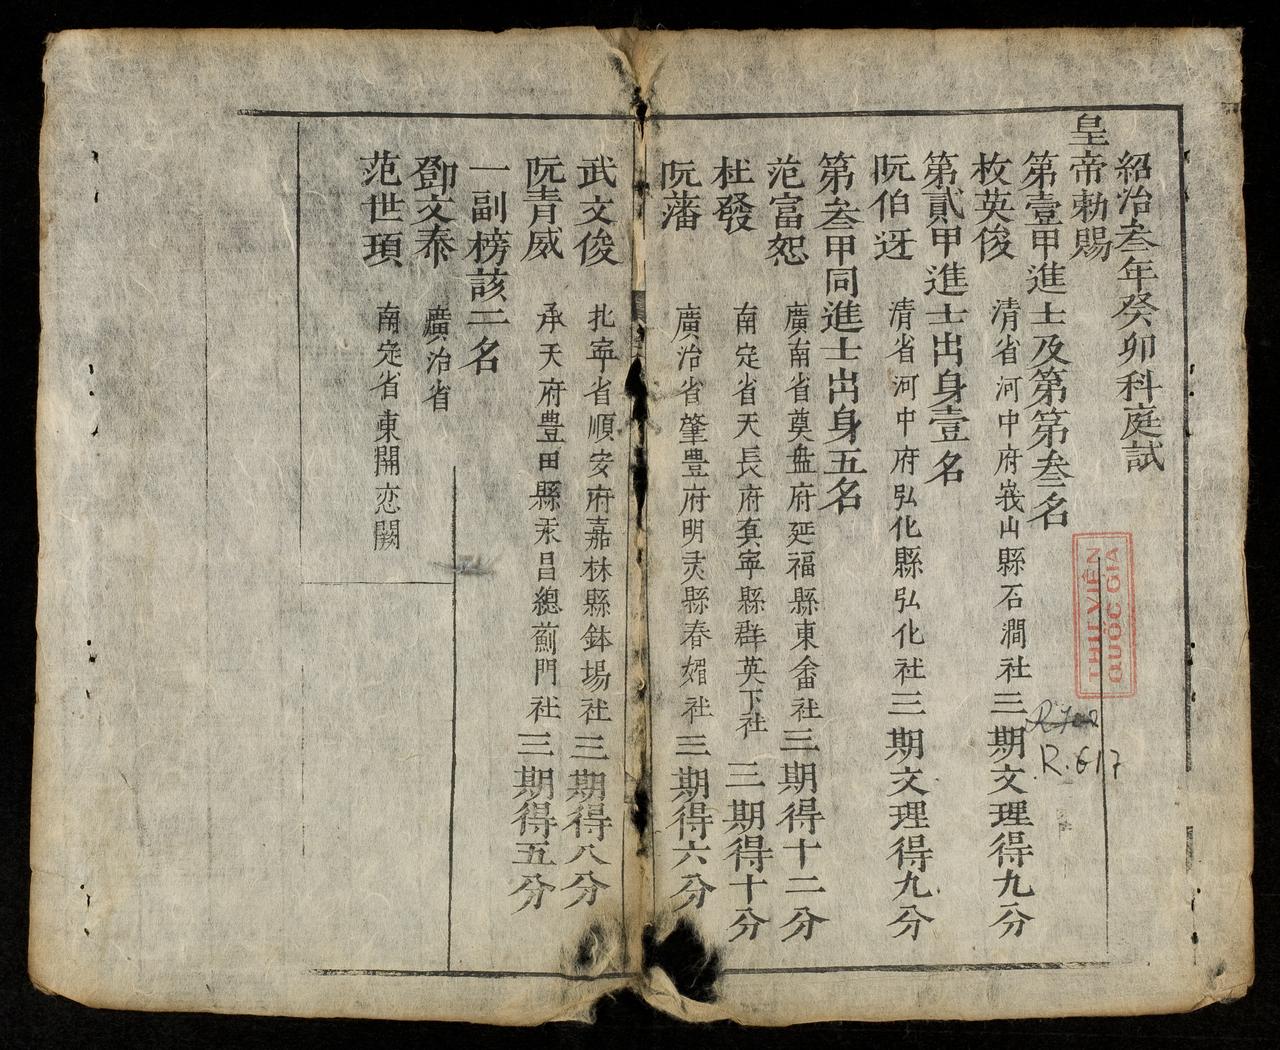 紹治叁年癸卯科庭試
皇帝勅賜
第壹甲進士及第第叁名
枚英俊 清省河中府峩山縣石澗社三期文理得九分
第貳甲進士出身壹名
阮伯迓 清省河中府弘化縣弘化社三期文理得九分
第叁甲同進士出身五名
范富恕 廣南省奠盘府延福縣東畨社三期得十二分
杜發 南定省天長府真寧縣群英下社 三期得十分
阮藩 廣治省肇豊府明灵縣春媚社三期得六分
武文俊 北寧省順安府嘉林縣鉢場社三期得八分
阮青威 承天府豊田縣永昌總薊門社三期得五分
一副榜該二名
鄧文泰 廣治省
范世頊 南定省東開恋闕
THƯ VIỆN
QUỐC GIA
R.617